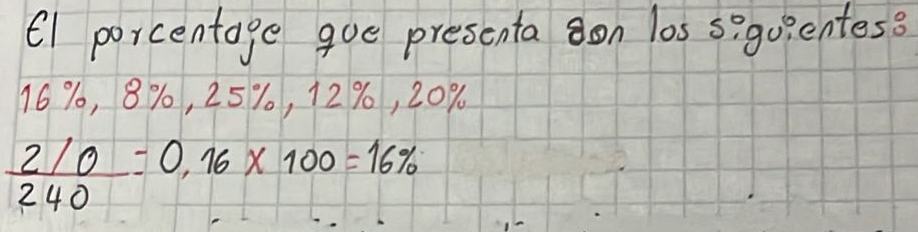 El porcentage que presenta son los siguientes:
16%, 8%, 25%, 12%, 20%
2/0 = 0,16 x 100 = 16%
240